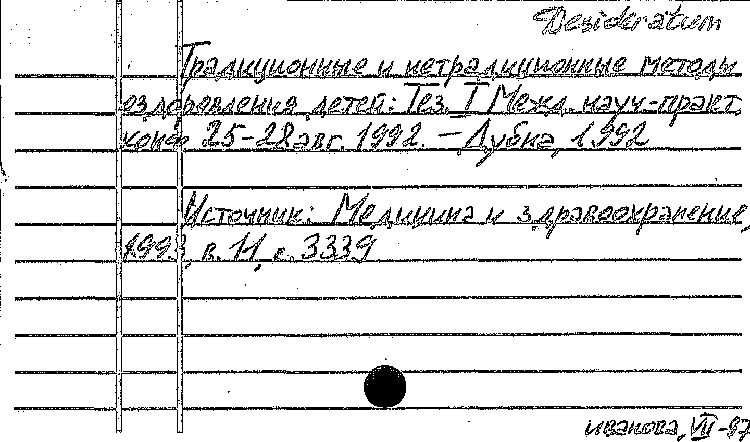 Desideratum
Традиционные и нетрадиционные методы
оздоровления детей: Тез. I Межд. науч-практ.
конф 25-28 авг. 1992. – Дубна, 1992
Источник: Медицина и здравоохранение,
1993, в. 11, с. 3339
Иванова, VII-97